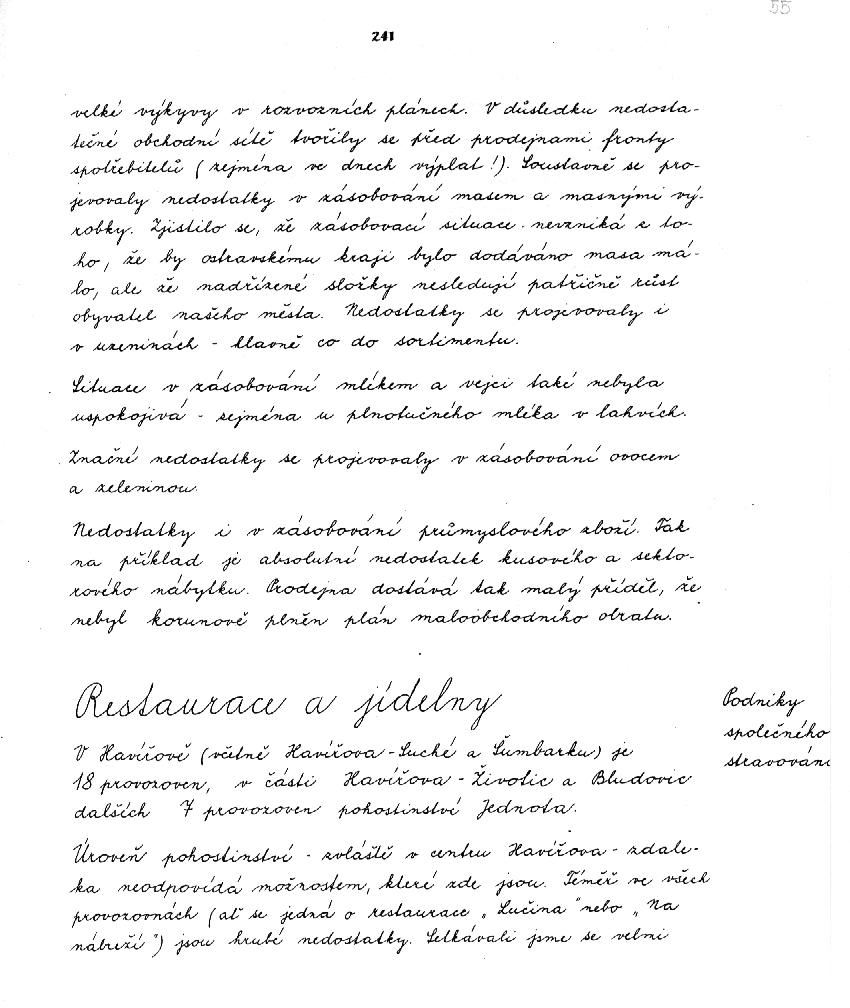 55
241
velké výkyvy v rozvozních plánech. V důsledku nedosta-
tečné obchodní sítě tvořily se před prodejnami fronty
spotřebitelů (zejména ve dnech výplat!). Soustavně se pro-
jevovaly nedostatky v zásobování masem a masnými vý-
robky. Zjistilo se, že zásobovací situace nevzniká z to-
ho, že by ostravskému kraji bylo dodáváno masa má-
lo, ale že nadřízené složky nesledují patřičně růst
obyvatel našeho města. Nedostatky se projevovaly i
v uzeninách - hlavně co do sortimentu.
Situace v zásobování mlékem a vejci také nebyla
uspokojivá - zejména u plnotučného mléka v lahvích.
Značné nedostatky se projevovaly v zásobování ovocem
a zeleninou.
Nedostatky i v zásobování průmyslového zboží. Tak
na příklad je absolutní nedostatek kusového a sekto-
rového nábytku. Prodejna dostává tak malý příděl, že
nebyl korunově plněn plán maloobchodního obratu.
Restaurace a jídelny
Podniky
společného
stravování
V Havířově (včetně Havířova-Suché a Šumbarku) je
18 provozoven, v části Havířova - Životic a Bludovic
dalších 7 provozoven pohostinství Jednota.
Úroveň pohostinství - zvláště v centru Havířova - zdale-
ka neodpovídá možnostem, které zde jsou. Téměř ve všech
provozovnách (ať se jedná o restaurace „Lučina" nebo „Na
nábřeží") jsou hrubé nedostatky. Setkávali jsme se velmi